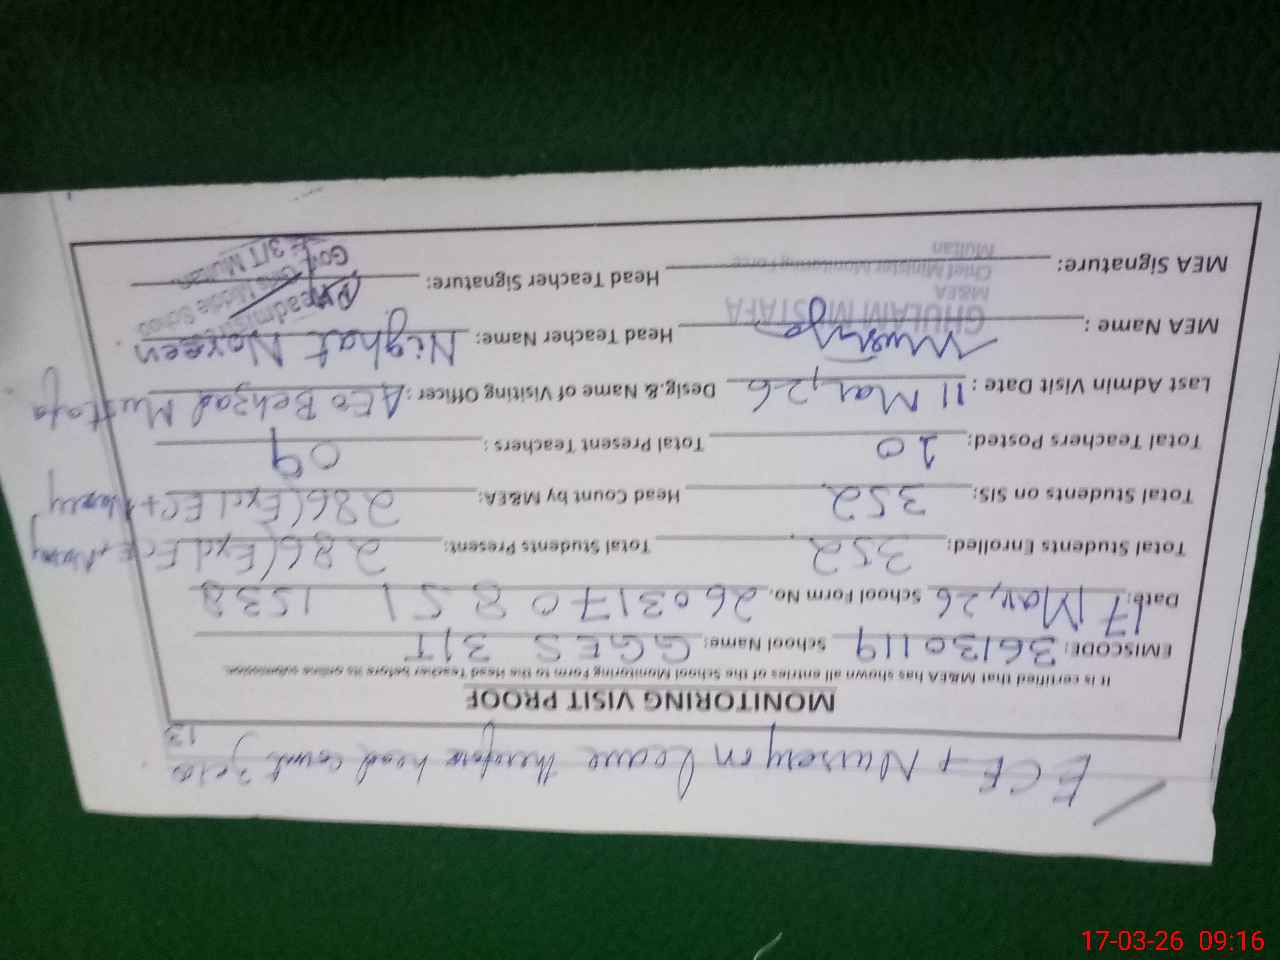 ECE + Nursery on Leave therefore head count zero
13
MONITORING VISIT PROOF
It is certified that M&EA has shown all entries of the School Monitoring Form to the Head Teacher before its online submission.
EMISCODE: 36130119 School Name: GGES 3/T
Date: 17 Mar, 26 School Form No. 26031708511538
Total Students Enrolled: 352 Total Students Present: 286 (Excl ECE + Nursery
Total Students on SIS: 352 Head Count by M&EA: 286 (Excl EC + Nursery
Total Teachers Posted: 10 Total Present Teachers: 09
Last Admin Visit Date: 11 Mar, 26 Desig.& Name of Visiting Officer: AEO Behzad Mustafa
MEA Name: GHULAM MUSTAFA Head Teacher Name: Nighat Noreen
M&EA
Chief Minister Monitoring Force
Multan
MEA Signature: Head Teacher Signature:
Headmistress
Middle School
3/T Multan
17-03-26 09:16